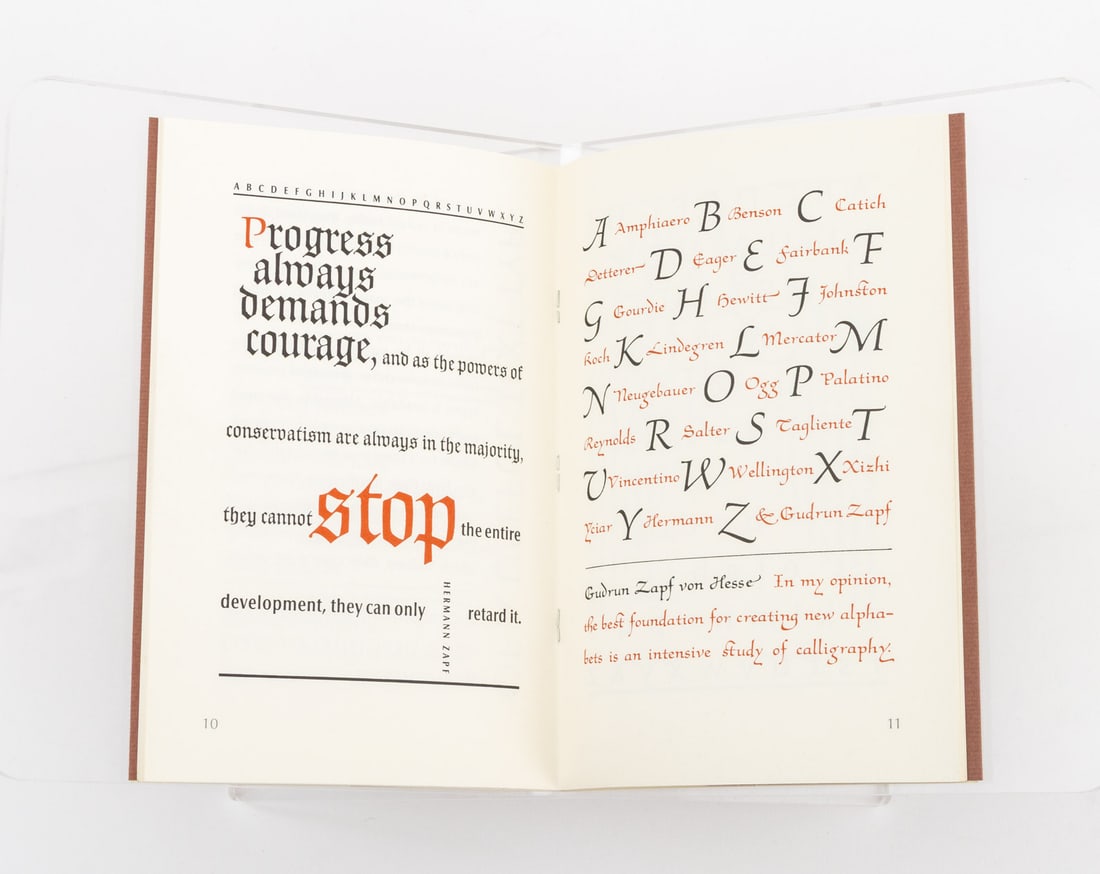 A B C D E F G H I J K L M N O P Q R S T U V W X Y Z
Progress
always
demands
courage, and as the powers of
conservatism are always in the majority,
they cannot stop the entire
development, they can only retard it.
HERMANN ZAPF
10
A Amphiaero B Benson C Catich
Detterer D Eager E Fairbank F
G Gourdie H Hewitt J Johnston
Koch K Lindegren L Mercator M
N Neugebauer O Ogg P Palatino
Reynolds R Salter S Tagliente T
V Vincentino W Wellington X Xizhi
Yciar Y Hermann Z & Gudrun Zapf
Gudrun Zapf von Hesse In my opinion,
the best foundation for creating new alpha-
bets is an intensive study of calligraphy.
11